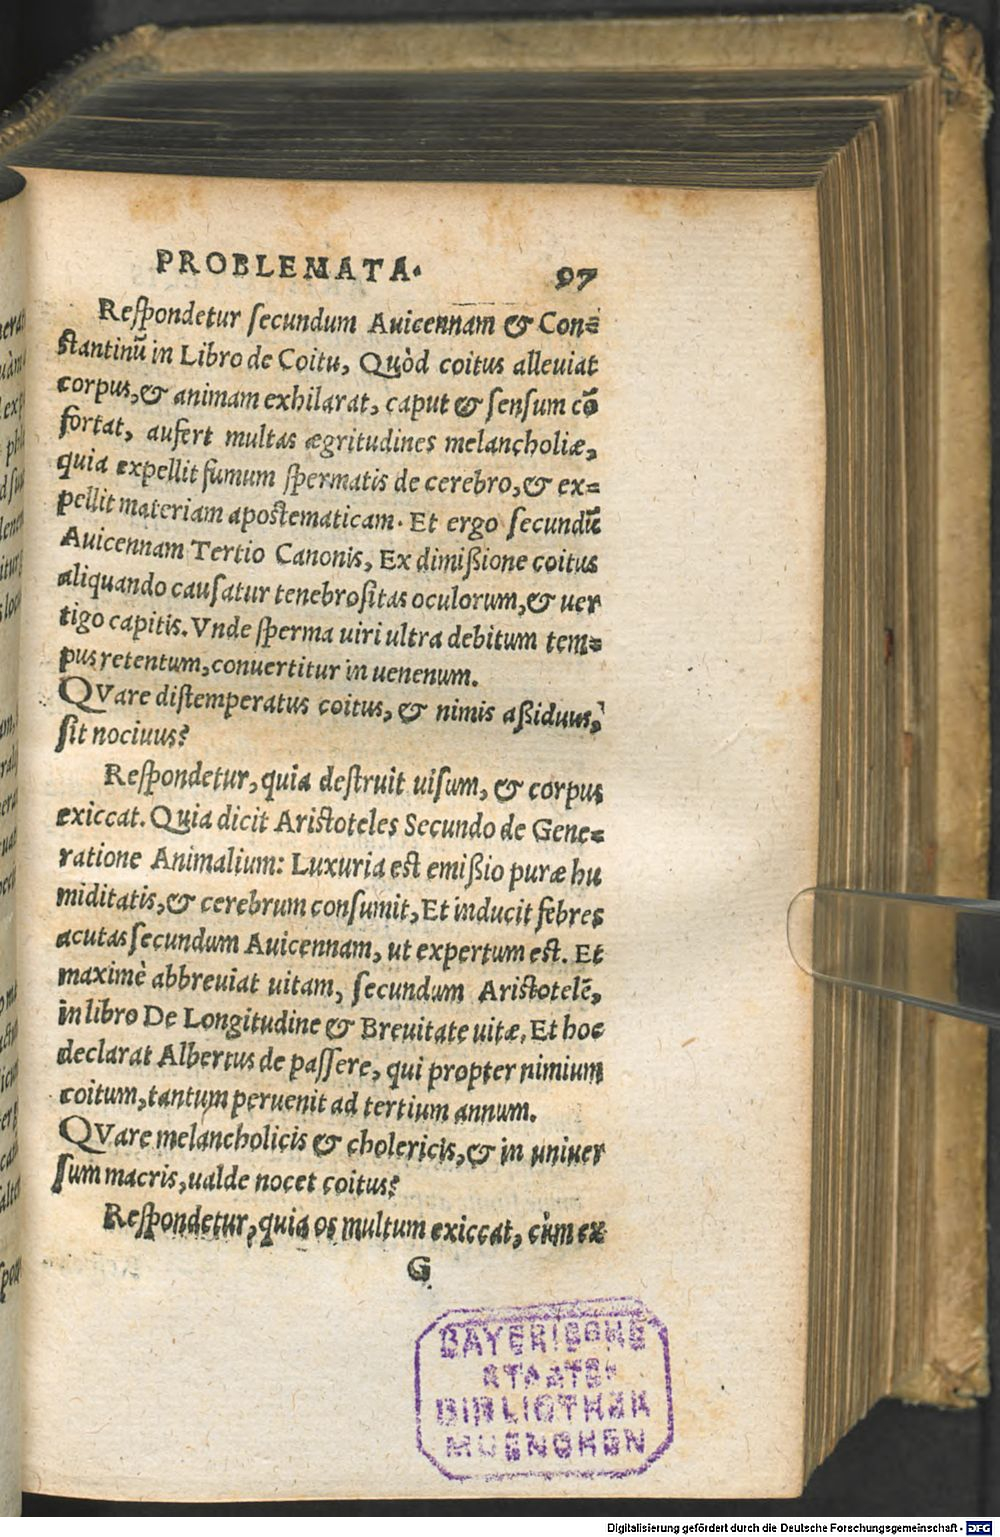 PROBLEMATA. 97
Reſpondetur ſecundum Auicennam & Con=
ſtantinũ in Libro de Coitu, Quòd coitus alleuiat
corpus, & animam exhilarat, caput & ſenſum cō
fortat, aufert multas ægritudines melancholiæ,
quia expellit fumum ſpermatis de cerebro, & ex=
pellit materiam apoſtematicam. Et ergo ſecundũ
Auicennam Tertio Canonis, Ex dimißione coitus
aliquando cauſatur tenebroſitas oculorum, & uer
tigo capitis. Vnde ſperma uiri ultra debitum tem=
pus retentum, conuertitur in uenenum.
QVare diſtemperatus coitus, & nimis aßiduus,
ſit nociuus?
Reſpondetur, quia deſtruit uiſum, & corpus
exiccat. Quia dicit Ariſtoteles Secundo de Gene=
ratione Animalium: Luxuria eſt emißio puræ hu
miditatis, & cerebrum conſumit, Et inducit febres
acutas ſecundum Auicennam, ut expertum eſt. Et
maximè abbreuiat uitam, ſecundum Ariſtotelē,
in libro De Longitudine & Breuitate uitæ. Et hoc
declarat Albertus de paſſere, qui propter nimium
coitum, tantum peruenit ad tertium annum.
QVare melancholicis & cholericis, & in uniuer
ſum macris, ualde nocet coitus?
Reſpondetur, quia os multum exiccat, cùm ex
G
BAYERISCHE
STAATS-
BIBLIOTHEK
MUENCHEN
Digitalisierung gefördert durch die Deutsche Forschungsgemeinschaft - DFG